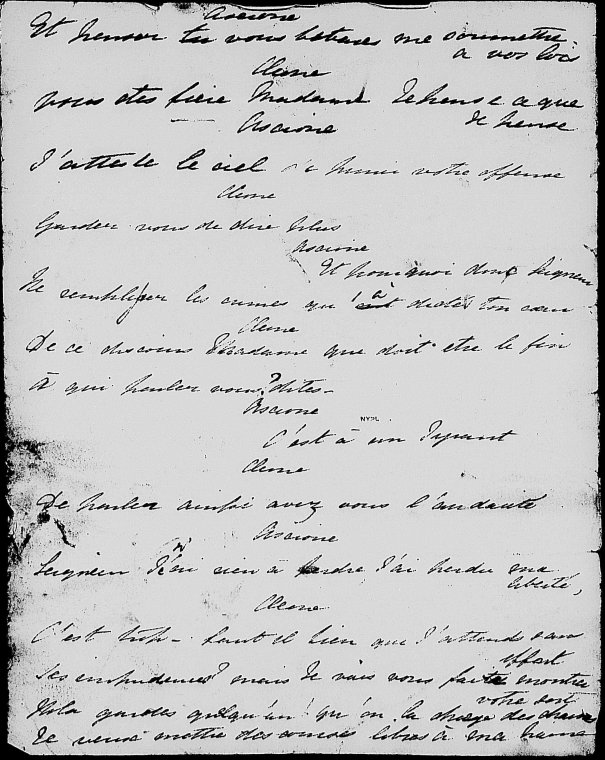 Ascione
Et penser tu vous me soumettre
à vos lois
Clone
Vous etes fière Madame Je pense ce que
Je pense
Ascione
J'atteste le ciel punir votre offense
Clone
Gardez vous de dire plus
Ascione
Et pourquoi donc Seigneur
Ne les crimes qu'a dictés ton cœur
Clone
De ce discours Madame que doit etre le fin
à qui parler vous? dites-
Ascione
NYPL
C'est à un Tyrant
Clone
De parler ainsi avez vous l'audaute
Ascione
Seigneur J'n'ai rien à perdre J'ai perdu ma
liberté,
Clone
C'est trop- faut il bien que J'attends
Ses imprudences? mais Je vais vous faire montre
effort
votre sort
Hola gardes quelqu'un! qu'on la charge des chaines
Je veux mettre des à ma haine